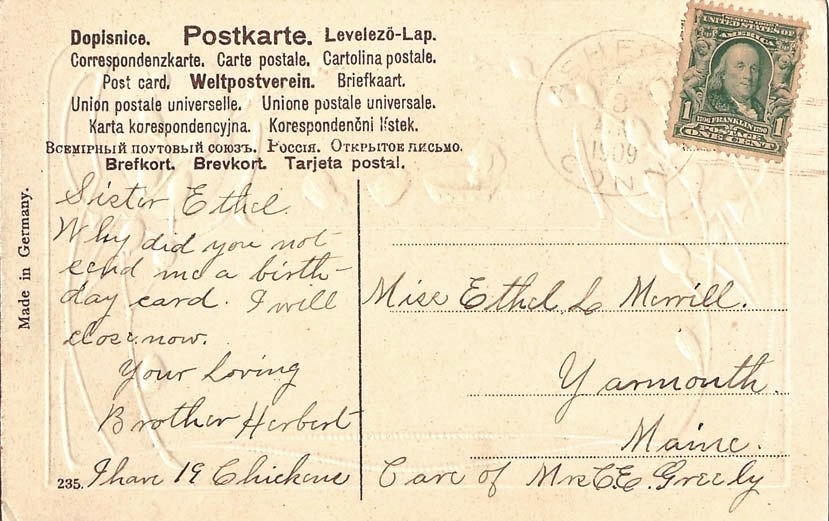 Dopisnice. Postkarte. Levelező-Lap.
Correspondenzkarte. Carte postale. Cartolina postale.
Post card. Weltpostverein. Briefkaart.
Unión postale universelle. Unione postale universale.
Karta korespondencyjna. Korespondenční lístek.
Всемірный поутовый союзъ. Россія. Открытое письмо.
Brefkort. Brevkort. Tarjeta postal.
CONN
1909
UNITED STATES OF
AMERICA
1706 FRANKLIN 1790
1 1
POSTAGE
ONE CENT
Made in Germany.
Sister Ethel.
Why did you not
send me a birth-
day card. I will
close now.
Your Loving
Brother Herbert
235. I have 19 Chickens
Miss Ethel L Merrill.
Yarmouth.
Maine.
Care of Mrs C.E. Greely